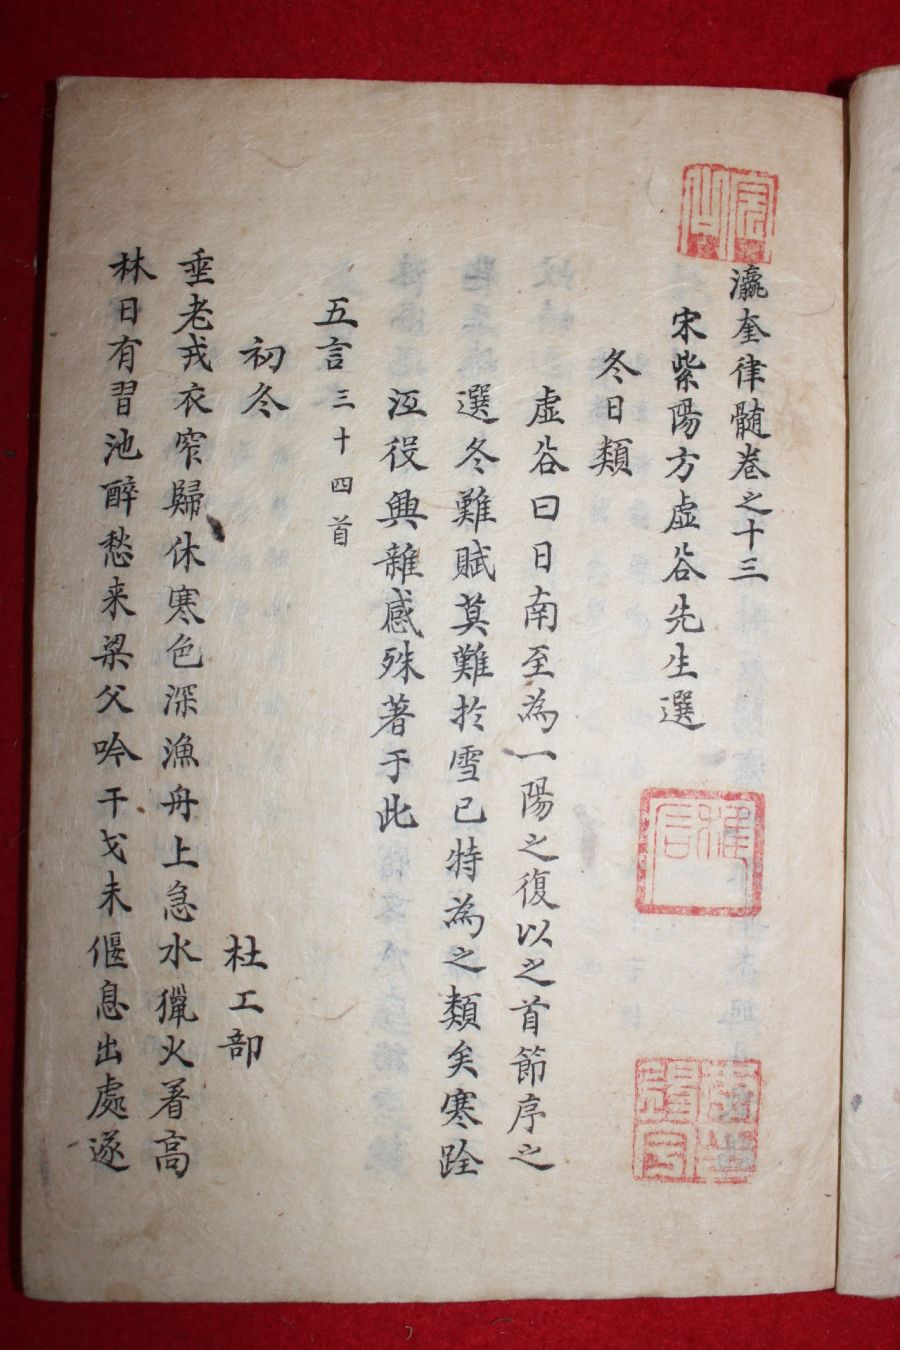 瀛奎律髓卷之十三
宋紫陽方虛谷先生選
冬日類
虛谷曰日南至為一陽之復以之首節序之
選冬難賦莫難於雪已特為之類矣寒跧
沍役興雜感殊著于此
五言三十四首
初冬
杜工部
垂老戎衣窄歸休寒色深漁舟上急水獵火着高
林日有習池醉愁来梁父吟干戈未偃息出處遂